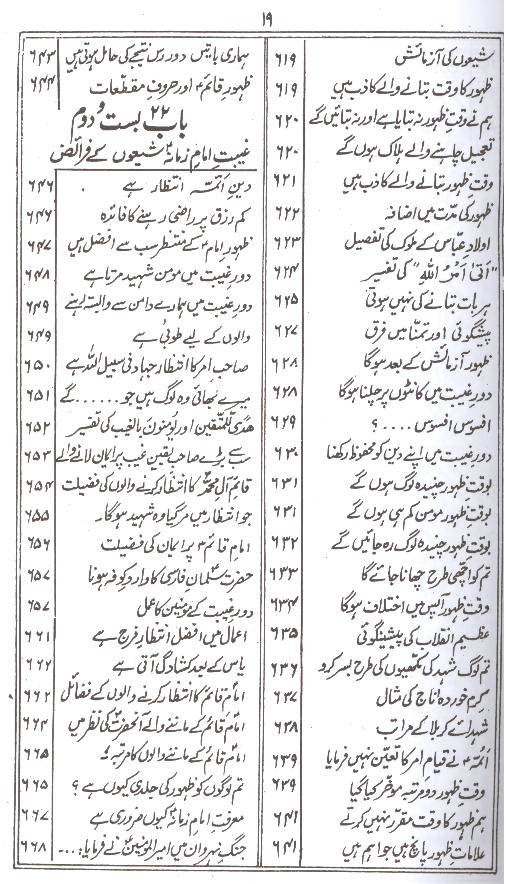 ۱۹
شیعوں کی آزمائش ۶۱۹
ظہور کا وقت بتانے والے کاذب ہیں ۶۱۹
ہم نے وقتِ ظہور نہ بتایا ہے اور نہ بتائیں گے ۶۲۰
تعجیل چاہنے والے ہلاک ہوں گے ۶۲۰
وقت ظہور بتانے والے کاذب ہیں ۶۲۱
ظہور کی مدّت میں اضافہ ۶۲۲
اولادِ عبّاس کے ملوک کی تفصیل ۶۲۳
"اَتٰۤى اَمْرُ اللّٰهِ" کی تفسیر ۶۲۴
ہر بات بتانے کی نہیں ہوتی ۶۲۵
پیشگوئی اور تمنّا میں فرق ۶۲۷
ظہور آزمائش کے بعد ہوگا ۶۲۸
دورِ غیبت میں کانٹوں پر چلنا ہوگا ۶۲۸
افسوس افسوس....؟ ۶۲۹
دورِ غیبت میں اپنے دین کو محفوظ رکھنا ۶۳۰
بوقت ظہور چنیدہ لوگ ہوں گے ۶۳۱
بوقتِ ظہور مومن کم ہی ہوں گے ۶۳۱
بوقتِ ظہور چنیدہ لوگ رہ جائیں گے ۶۳۲
تم کو اچھی طرح چھانا جائے گا ۶۳۳
وقتِ ظہور آپس میں اختلاف ہوگا ۶۳۴
عظیم انقلاب کی پیشینگوئی ۶۳۵
تم لوگ شہد کی مکھیوں کی طرح بسر کرو ۶۳۶
کرم خوردہ اناج کی مثال ۶۳۷
شہدائے کربلا کے مراتب ۶۳۸
آئمّہؑ نے قیامِ امر کا تعیّن نہیں فرمایا ۶۳۹
وقتِ ظہور دو مرتبہ مؤخر کیا گیا ۶۳۹
ہم ظہور کا وقت مقرّر نہیں کرتے ۶۴۱
علاماتِ ظہور پانچ ہیں جو اہم ہیں ۶۴۱
ہماری باتیں دور رس نتیجے کی حامل ہوتی ہیں ۶۴۳
ظہورِ قائمؑ اور حروفِ مقطعات ۶۴۴
باب ۲۲ بست و دوم
غیبتِ امام زمانہؑ شیعوں کے فرائض
دینِ آئمّہ انتظار ہے ۶۴۶
کم رزق پر راضی رہنے کا فائدہ ۶۴۶
ظہورِ امامؑ کے منتظر سب سے افضل ہیں ۶۴۷
دورِ غیبت میں مومن شہید مرتا ہے ۶۴۸
دورِ غیبت میں ہمارے دامن سے وابستہ رہنے ۶۴۹
والوں کے لیے طوبیٰ ہے ۶۴۹
صاحبِ امر کا انتظار جہاد فی سبیل اللہ ہے ۶۵۰
میرے بھائی وہ لوگ ہیں جو......گے ۶۵۱
ھُدًی لِّلْمُتَّقِیْنَ اور یُؤمنونَ بالغیب کی تفسیر ۶۵۲
سب سے بڑے صاحبِ یقین غیب پر ایمان لانے والے ۶۵۳
قائمِ آلِ محمدؐ کا انتظار کرنے والوں کی فضیلت ۶۵۴
جو انتظار میں مرگیا وہ شہید ہوگا۔ ۶۵۵
امام قائمؑ پر ایمان کی فضیلت ۶۵۶
حضرت سلمانِ فارسی کا واردِ کوفہ ہونا ۶۵۷
دورِ غیبت کے مومنین کا عمل ۶۵۷
اعمال میں افضل انتظارِ فرج ہے ۶۶۱
یاس کے بعد کشادگی آتی ہے ۶۶۲
امام قائمؑ کا انتظار کرنے والوں کے فضائل ۶۶۲
امام قائمؑ کے ماننے والے آنحضرتؐ کی نظر میں ۶۶۴
امام قائمؑ کے ماننے والوں کا مرتبہ ۶۶۵
تم لوگوں کو ظہور کی جلدی کیوں ہے؟ ۶۶۵
معرفتِ امامِ زمانہؑ کیوں ضروری ہے ۶۶۷
جنگِ نہروان میں امیرالمومنینؑ نے فرمایا:... ۶۶۸